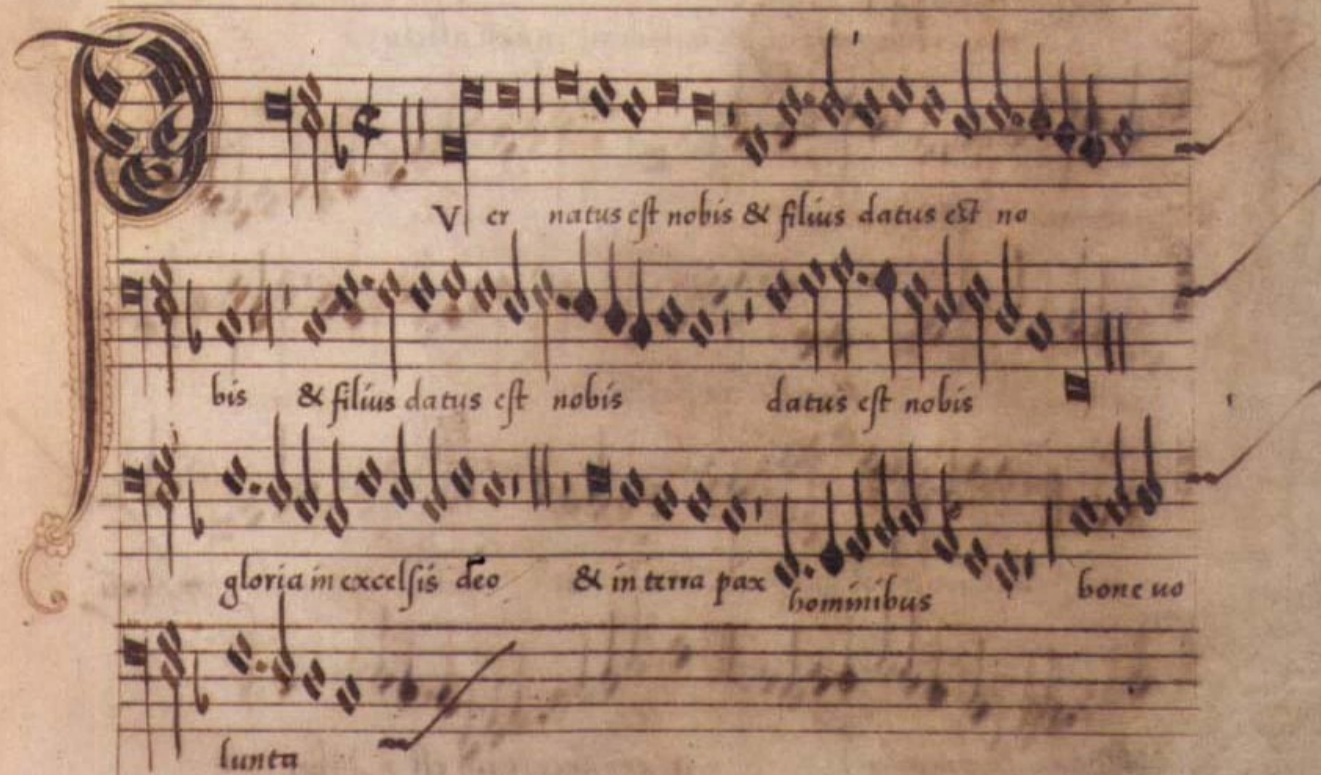 P V er natus est nobis & filius datus est no
bis & filius datus est nobis datus est nobis
gloria in excelsis deo & in terra pax hominibus bone uo
lunta